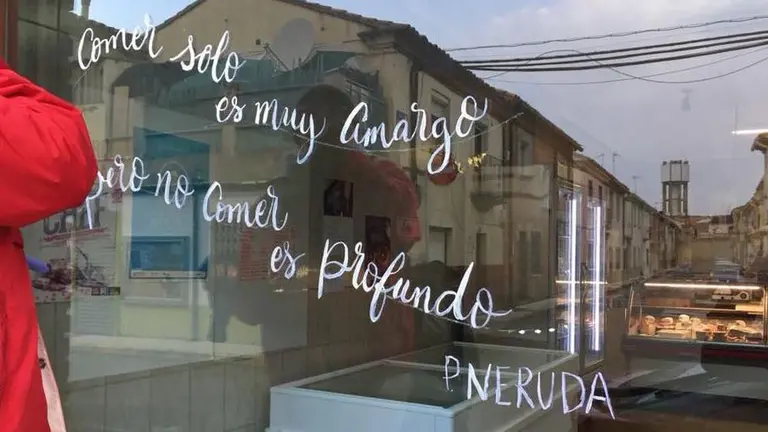 Comer solo
es muy amargo
pero no comer
es profundo
P. NERUDA